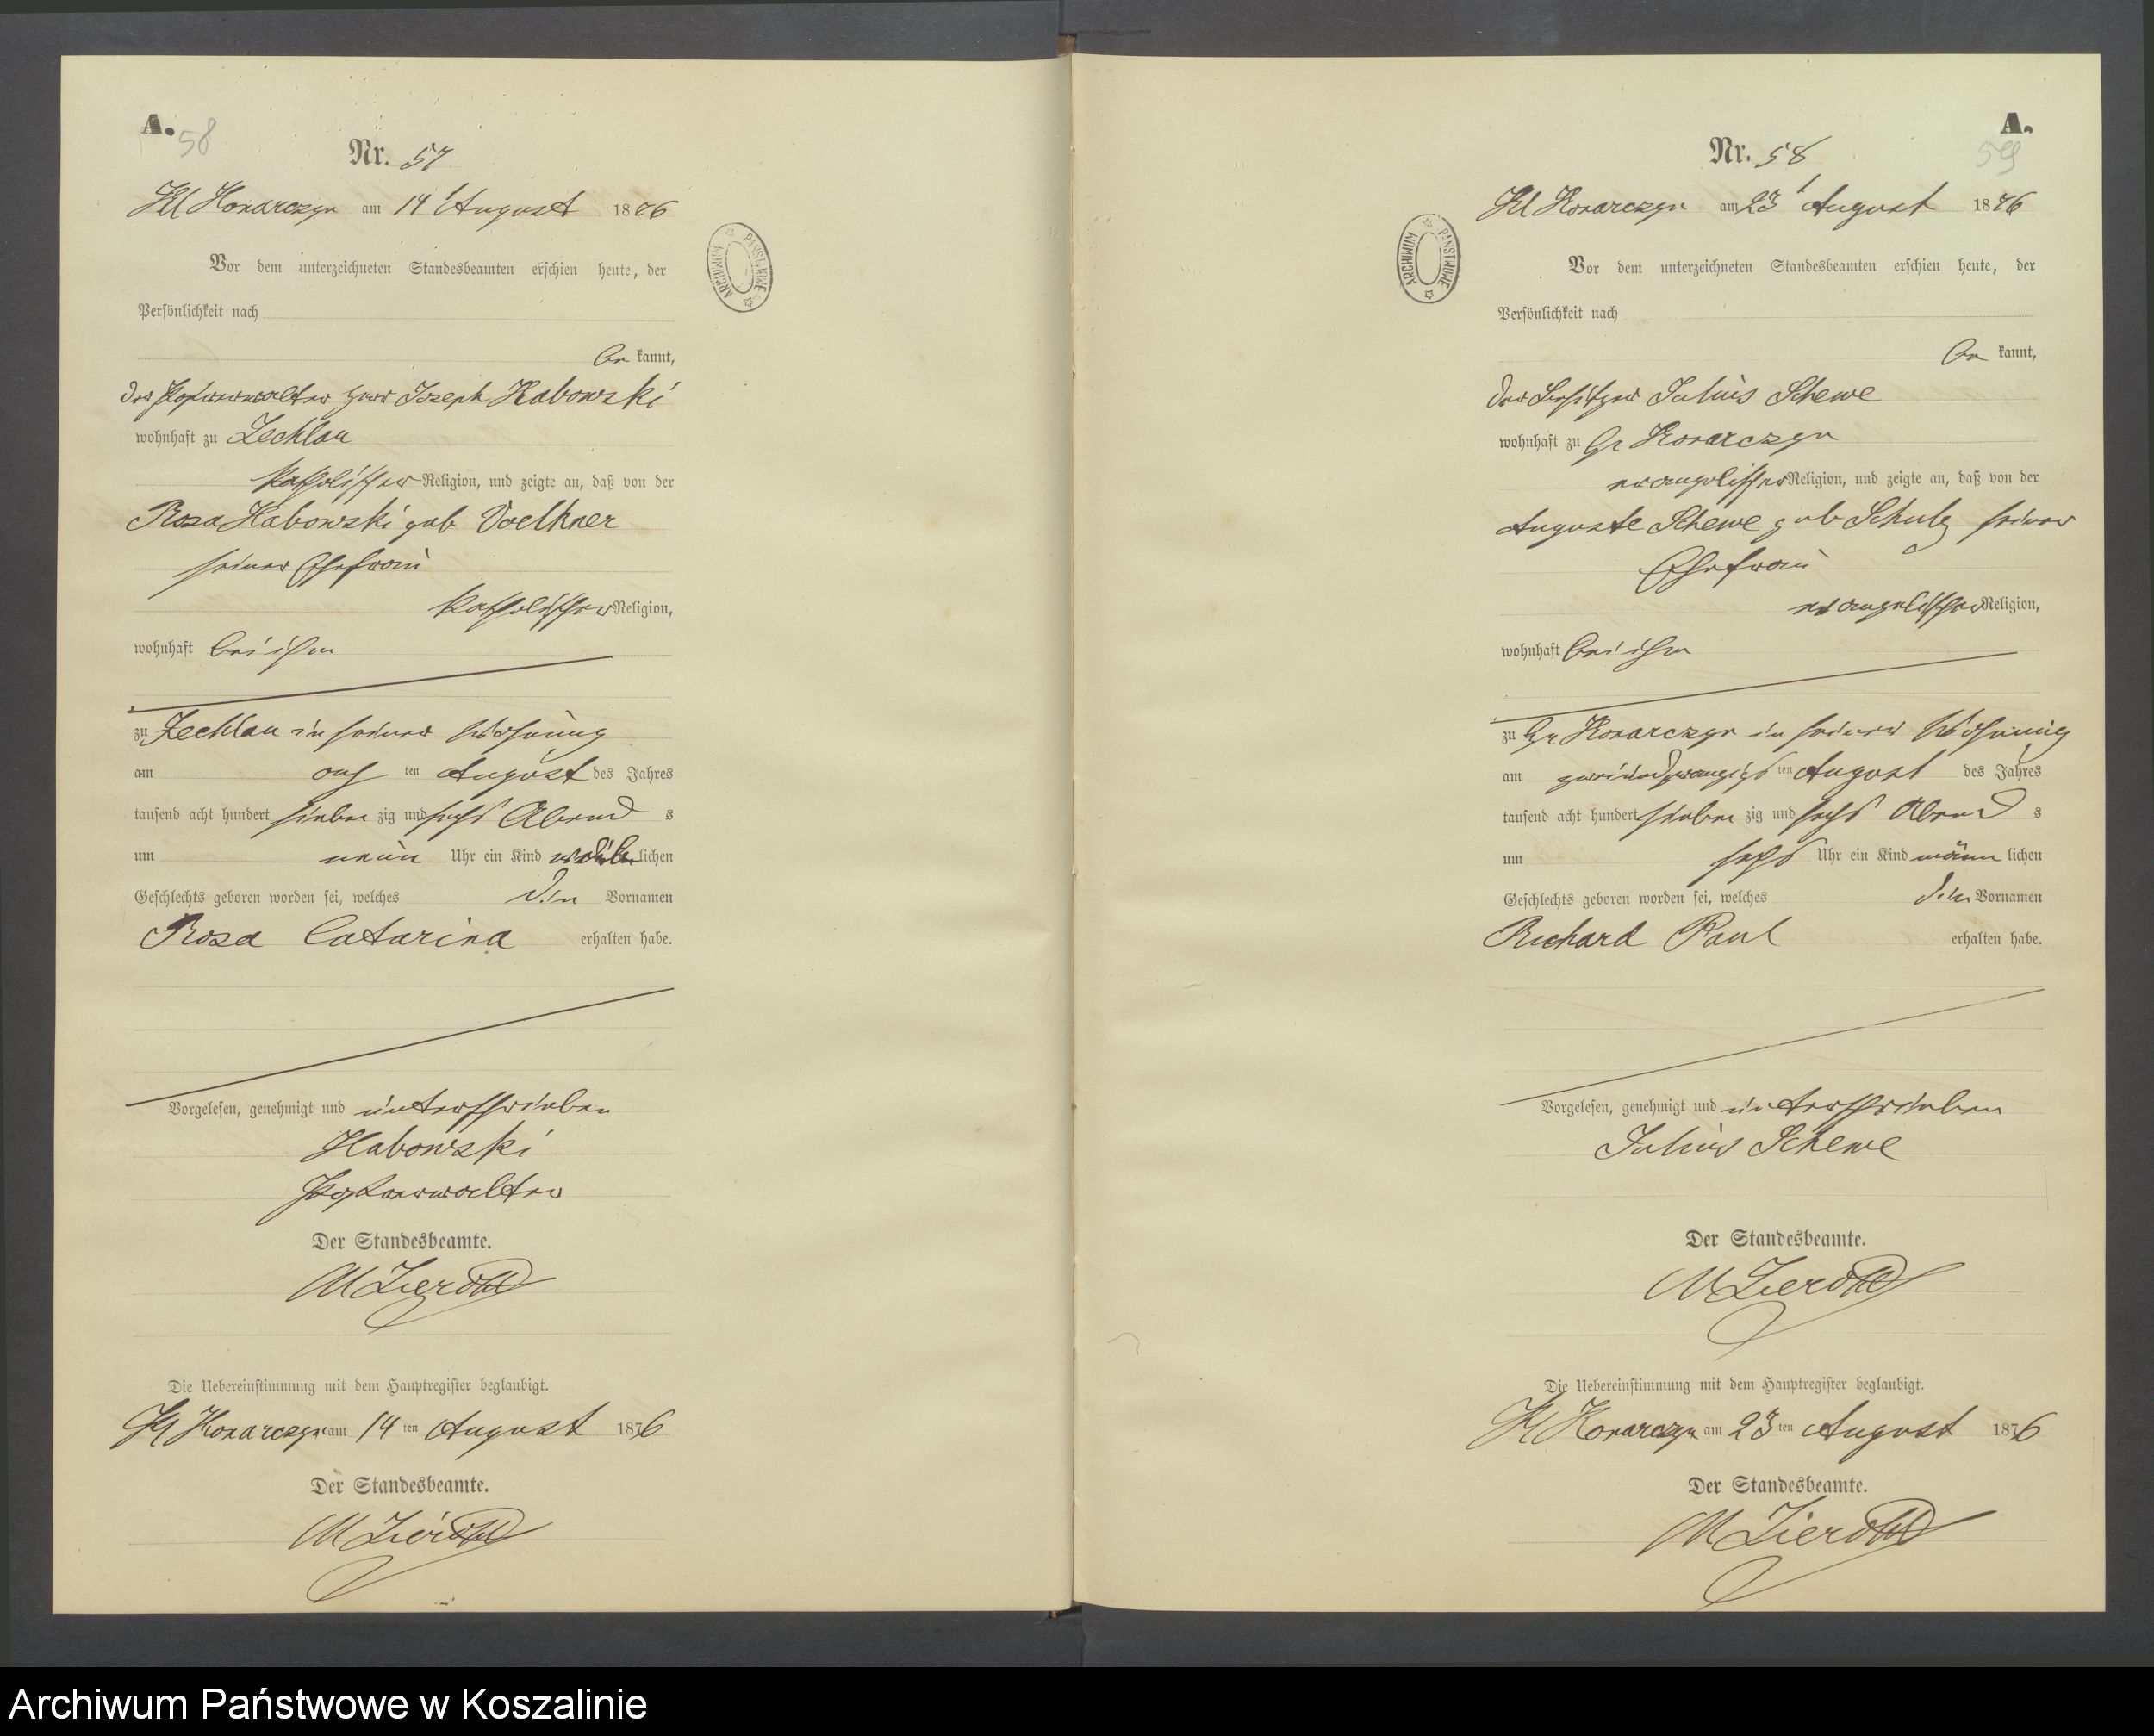 A. 58
Nr. 57
Kl Konarczyn am 14 August 1876
Vor dem unterzeichneten Standesbeamten erschien heute, der
Persönlichkeit nach
be kannt,
der Postverwalter Herr Joseph Habowski
wohnhaft zu Zechlau
katholischer Religion, und zeigte an, daß von der
Rosa Habowski geb Voelkner
seiner Ehefrau
katholischer Religion,
wohnhaft bei ihm
zu Zechlau in seiner Wohnung
am ach ten August des Jahres
tausend acht hundert sieben zig und sechs Abend s
um neun Uhr ein Kind weib lichen
Geschlechts geboren worden sei, welches die Vornamen
Rosa Catarina erhalten habe.
Vorgelesen, genehmigt und unterschrieben
Habowski
Postverwalter
Der Standesbeamte.
Die Uebereinstimmung mit dem Hauptregister beglaubigt.
Kl Konarczyn am 14 ten August 1876
Der Standesbeamte.
ARCHIWUM PAŃSTWOWE
A.
59
Nr. 58
Kl Konarczyn am 23 August 1876
Vor dem unterzeichneten Standesbeamten erschien heute, der
Persönlichkeit nach
be kannt,
der Besitzer Julius Schewe
wohnhaft zu Gr Konarczyn
evangelischer Religion, und zeigte an, daß von der
Auguste Schewe geb Schulz seiner
Ehefrau
evangelischer Religion,
wohnhaft bei ihm
zu Gr Konarczyn in seiner Wohnung
am zweiundzwanzigs ten August des Jahres
tausend acht hundert sieben zig und sechs Abend s
um sechs Uhr ein Kind männ lichen
Geschlechts geboren worden sei, welches die Vornamen
Richard Paul erhalten habe.
Vorgelesen, genehmigt und unterschrieben
Julius Schewe
Der Standesbeamte.
Die Uebereinstimmung mit dem Hauptregister beglaubigt.
Kl Konarczyn am 23 ten August 1876
Der Standesbeamte.
ARCHIWUM PAŃSTWOWE
Archiwum Państwowe w Koszalinie